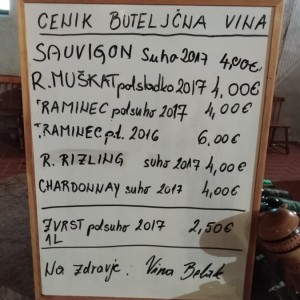 CENIK BUTELJČNA VINA
SAUVIGON suho 2017 4,00€
R.MUŠKAT polsladko 2017 4,00€
TRAMINEC polsuho 2017 4,00€
TRAMINEC p.t. 2016 6,00€
R. RIZLING suho 2017 4,00€
CHARDONNAY suho 2017 4,00€
ZVRST polsuho 2017 2,50€
1L
Na zdravje: Vina Belak